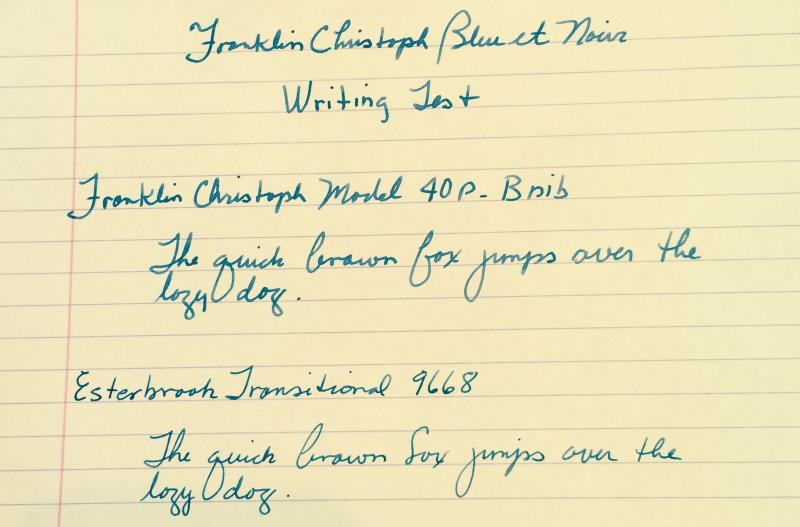 Franklin Christoph Bleu et Noir
Writing Test
Franklin Christoph Model 40P. B nib
The quick brown fox jumps over the
lazy dog.
Esterbrook Transitional 9668
The quick brown fox jumps over the
lazy dog.